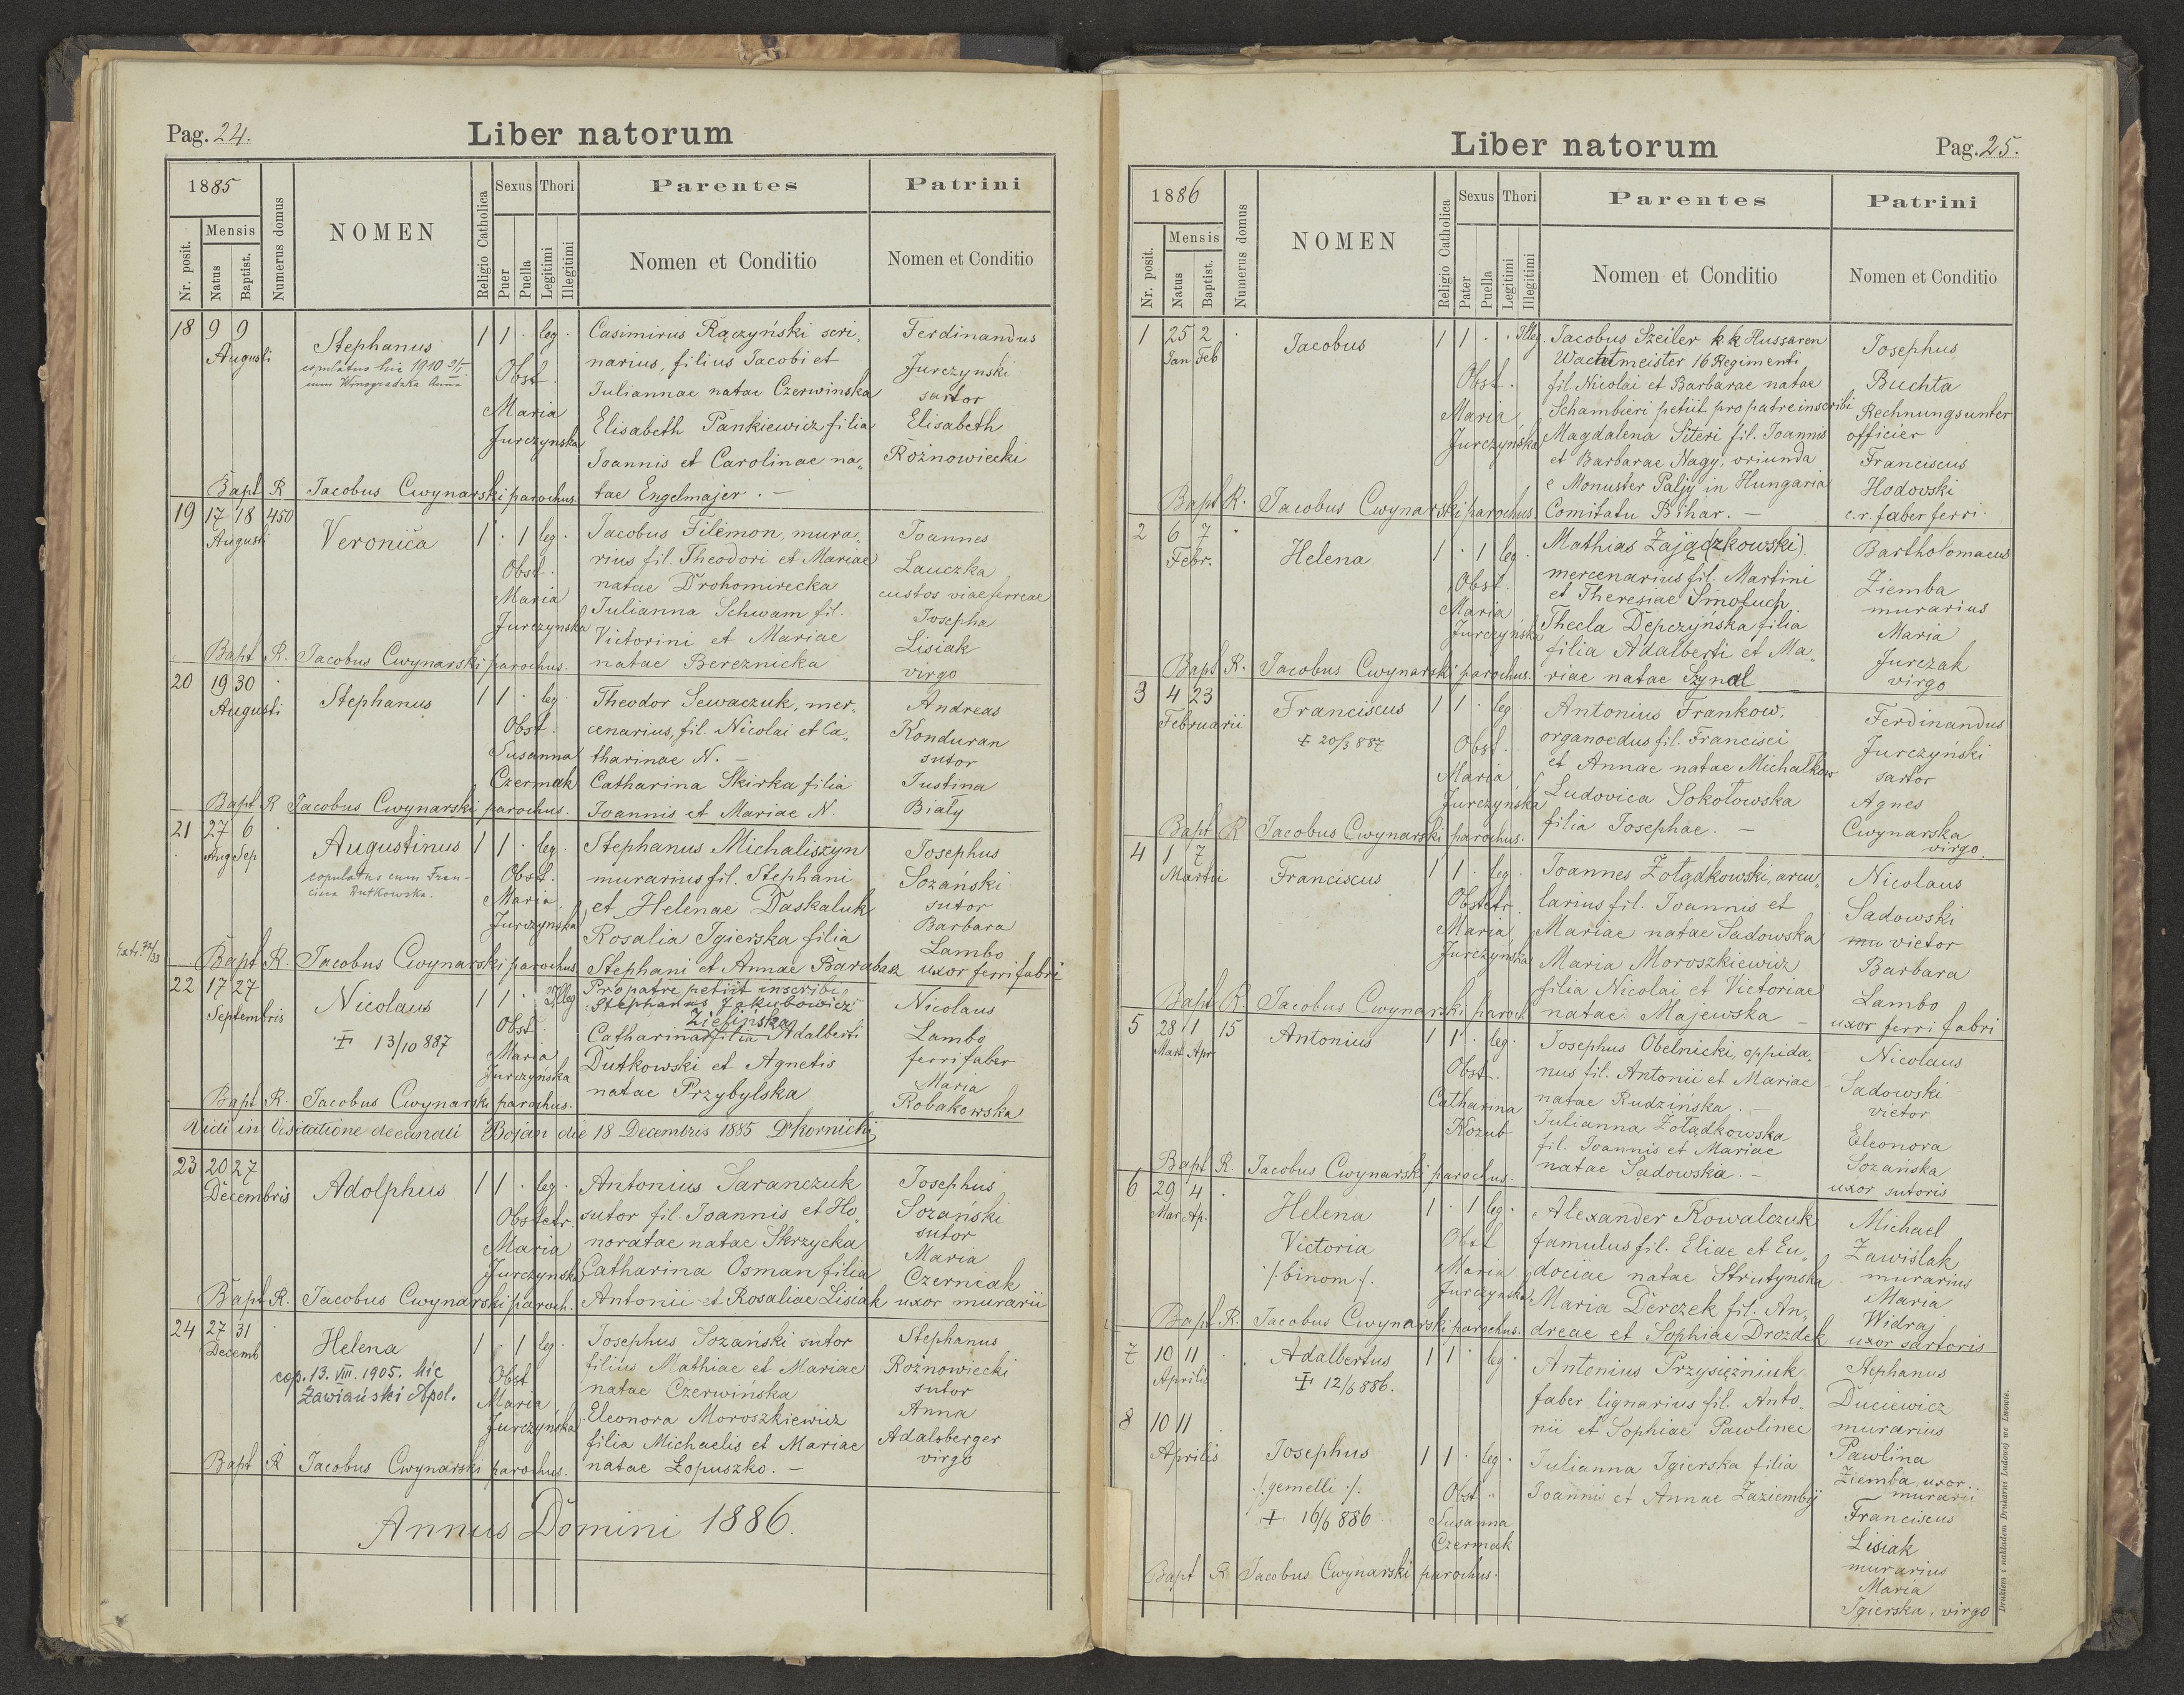 Pag. 24.
Liber natorum
1885
Nr. posit.
Mensis
Natus
Baptist.
Numerus domus
NOMEN
Religio Catholica
Sexus
Puer
Puella
Thori
Legitimi
Illegitimi
Parentes
Nomen et Conditio
Patrini
Nomen et Conditio
18 9 9
Augusti
Stephanus
copulatus hic 1910
cum Winogradzka Anna
1 1 · leg ·
Obst.
Maria
Jurczynska
Casimirus Rączyński scri-
narius, filius Jacobi et
Juliannae natae Czerwinska
Elisabeth Pankiewicz filia
Joannis et Carolinae na„
tae Engelmajer. —
Ferdinandus
Jurczynski
sartor
Elisabeth
Rożnowiecki
Bapt R Jacobus Cwynarski parochus.
19 17 18 450
Augusti
Veronica
1 · 1 leg ·
Obst.
Maria
Jurczynska
Jacobus Filemon, mura„
rius fil. Theodori et Mariae
natae Drohomirecka
Julianna Schwam fil.
Victorini et Mariae
natae Bereznicka
Joannes
Lauczka
custos viae ferreae
Josepha
Lisiak
virgo
Bapt R. Jacobus Cwynarski parochus.
20 19 30 ·
Augusti
Stephanus
1 1 · leg ·
Obst.
Susanna
Czermak
Theodor Sewaczuk, mer„
cenarius, fil. Nicolai et Ca„
tharinae N. —
Catharina Skirka filia
Joannis et Mariae N.
Andreas
Konduran
sutor
Justina
Biały
Bapt R Jacobus Cwynarski parochus.
21 27 6 ·
Aug Sep
Augustinus
copulatus cum Fran-
cisca Dutkowska.
1 1 · leg ·
Obst.
Maria
Jurczynska
Stephanus Michaliszyn
murarius fil. Stephani
et Helenae Daskaluk
Rosalia Igierska filia
Stephani et Annae Barabasz
Josephus
Sozański
sutor
Barbara
Lambo
uxor ferri fabri
Bapt R. Jacobus Cwynarski parochus.
22 17 27
Septembris
Nicolaus
✝ 13/10 887
1 1 · Illeg
Obst.
Maria
Jurczyńska
Pro patre petiit inscribi
Stephanus Jakubowicz
Zielińska
Catharina filia Adalberti
Dutkowski et Agnetis
natae Przybylska
Nicolaus
Lambo
ferrifaber
Maria
Robakowska
Bapt R. Jacobus Cwynarski parochus.
Vidi in Visitatione decanali Bojan die 18 Decembris 1885 Dr Kornicki
23 20 27
Decembris
Adolphus
1 1 · leg ·
Obstetr.
Maria
Jurczynska
Antonius Saranczuk
sutor fil. Joannis et Ho„
noratae natae Skrzycka
Catharina Osman filia
Antonii et Rosaliae Lisiak
Josephus
Sozański
sutor
Maria
Czerniak
uxor murarii
Bapt R. Jacobus Cwynarski paroch.
24 27 31 ·
Decemb
Helena
cop. 13. VIII. 1905. hic
Zawiański Apol.
1 · 1 leg ·
Obst
Maria
Jurczyńska
Josephus Sozański sutor
filius Mathiae et Mariae
natae Czerwińska
Eleonora Moroszkiewicz
filia Michaelis et Mariae
natae Łopuszko. —
Stephanus
Rożnowiecki
sutor
Anna
Adalsberger
virgo
Bapt R Jacobus Cwynarski parochus.
Annus Domini 1886.
Liber natorum
Pag. 25.
1886
Nr. posit.
Mensis
Natus
Baptist.
Numerus domus
NOMEN
Religio Catholica
Sexus
Pater
Puella
Thori
Legitimi
Illegitimi
Parentes
Nomen et Conditio
Patrini
Nomen et Conditio
1 25 2 ·
Jan Feb
Jacobus
1 1 · · Illeg.
Obst.
Maria
Jurczyńska
Jacobus Szeiler k k Hussaren
Wachtmeister 16 Regimenti
fil. Nicolai et Barbarae natae
Schambieri petiit pro patre inscribi
Magdalena Siteri fil. Joannis
et Barbarae Nagy, oriunda
e Monuster Paljy in Hungaria
Comitatu Bihar. —
Josephus
Buchta
Rechnungsunter
officier
Franciscus
Hodovski
c. r. faber ferri
Bapt R. Jacobus Cwynarski parochus.
2 6 7 ·
Febr.
Helena
1 · 1 leg ·
Obst.
Maria
Jurczyńska
Mathias Zając(zkowski)
mercenarius fil. Martini
et Theresiae Smoluch
Thecla Depczyńska filia
filia Adalberti et Ma„
riae natae Szynal
Bartholomaeus
Ziemba
murarius
Maria
Jurczak
virgo
Bapt R. Jacobus Cwynarski parochus.
3 4 23
Februarii
Franciscus
✝ 20/3 887
1 1 · leg ·
Obst.
Maria
Jurczyńska
Antonius Frankow,
organoedus fil. Francisci
et Annae natae Michalkow
Ludovica Sokołowska
filia Josephae. —
Ferdinandus
Jurczyński
sartor
Agnes
Cwynarska
virgo.
Bapt R Jacobus Cwynarski parochus.
4 1 7
Martii
Franciscus
1 1 · leg ·
Obstetr.
Maria
Jurczyńska
Joannes Żołądkowski, arcu„
larius fil. Joannis et
Mariae natae Sadowska
Maria Moroszkiewicz
filia Nicolai et Victoriae
natae Majewska —
Nicolaus
Sadowski
mu vietor
Barbara
Lambo
uxor ferri fabri
Bapt R. Jacobus Cwynarski paroch
5 28 1 15
Mart Apr
Antonius
1 1 · leg ·
Obst.
Catharina
Kozub
Josephus Obelnicki, oppida„
nus fil. Antonii et Mariae
natae Rudzińska. —
Julianna Żołądkowska
fil. Joannis et Mariae
natae Sadowska. —
Nicolaus
Sadowski
vietor
Eleonora
Sozańska
uxor sutoris
Bapt R. Jacobus Cwynarski parochus.
6 29 4 ·
Mar Ap.
Helena
Victoria
/: binom :/.
1 · 1 leg ·
Obst
Maria
Jurczynska
Alexander Kowalczuk
famulus fil. Eliae et Eu„
dociae natae Strutynska
Maria Derczek fil. An„
dreae et Sophiae Drozdek
Michael
Zawiślak
murarius
Maria
Widraj
uxor sartoris
Bapt R. Jacobus Cwynarski parochus.
7 10 11 ·
Aprilis
Adalbertus
✝ 12/6 886.
1 1 · leg ·
8 10 11 ·
Aprilis
Josephus
/: gemelli :/.
✝ 16/6 886
1 1 · leg ·
Obst.
Susanna
Czermak
Antonius Przysiężniuk
faber lignarius fil. Anto„
nii et Sophiae Pawlinec
Julianna Igierska filia
Joannis et Annae Zaziembij
Stephanus
Duciewicz
murarius
Pawlina
Ziemba uxor
murarii
Franciscus
Lisiak
murarius
Maria
Igierska, virgo
Bapt R Jacobus Cwynarski parochus.
Drukiem i nakładem Drukarni Ludowej we Lwowie.